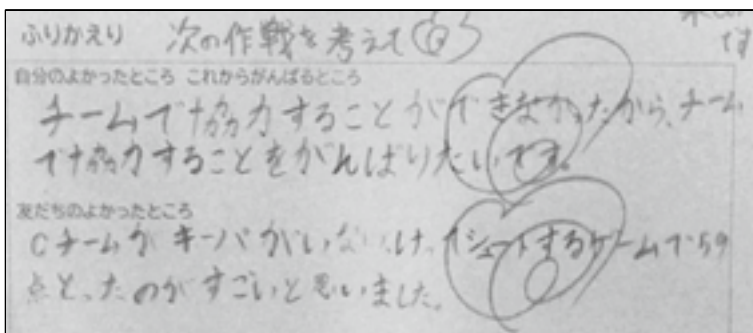 ふりかえり 次の作戦を考えて
です
自分のよかったところ これからがんばるところ
チームで協力することができなかったから、チーム
で協力することをがんばりたいです。
友だちのよかったところ
Cチームがキーパがいないけどシュートするゲームで59
点とったのがすごいと思いました。